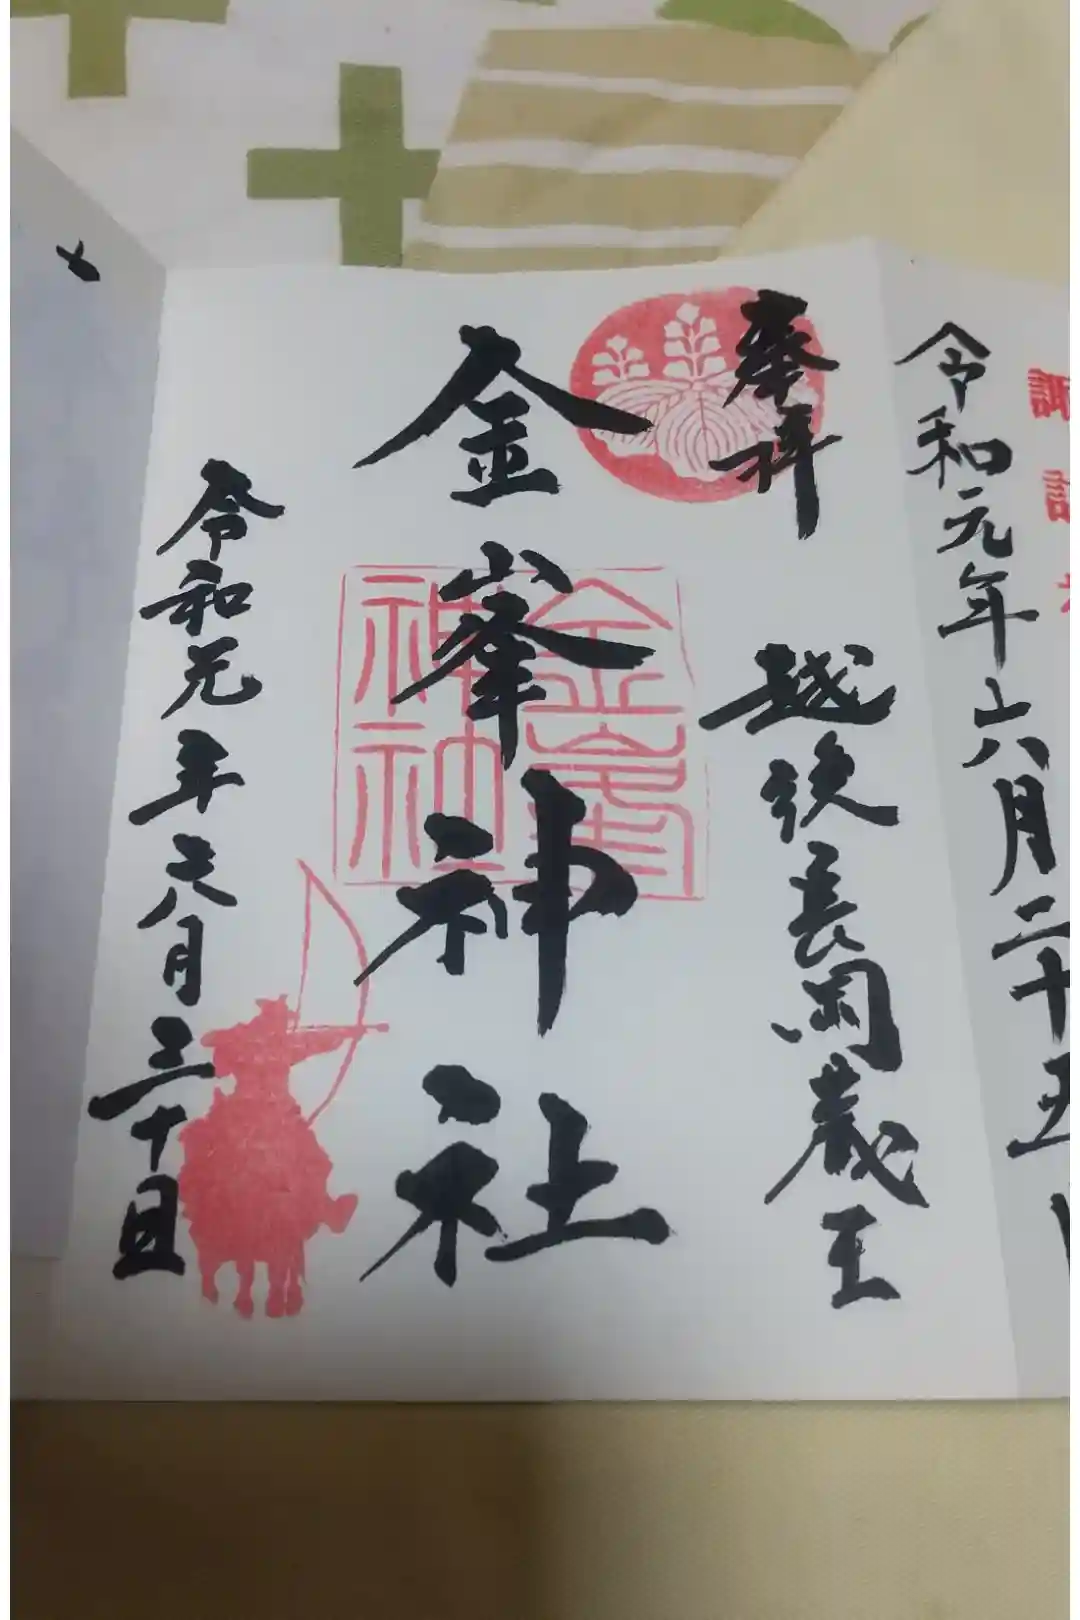 令和元年六月二十五
諏訪
奉拝
越後長岡蔵王
金峯神社
金峯神社
令和元年六月三十日